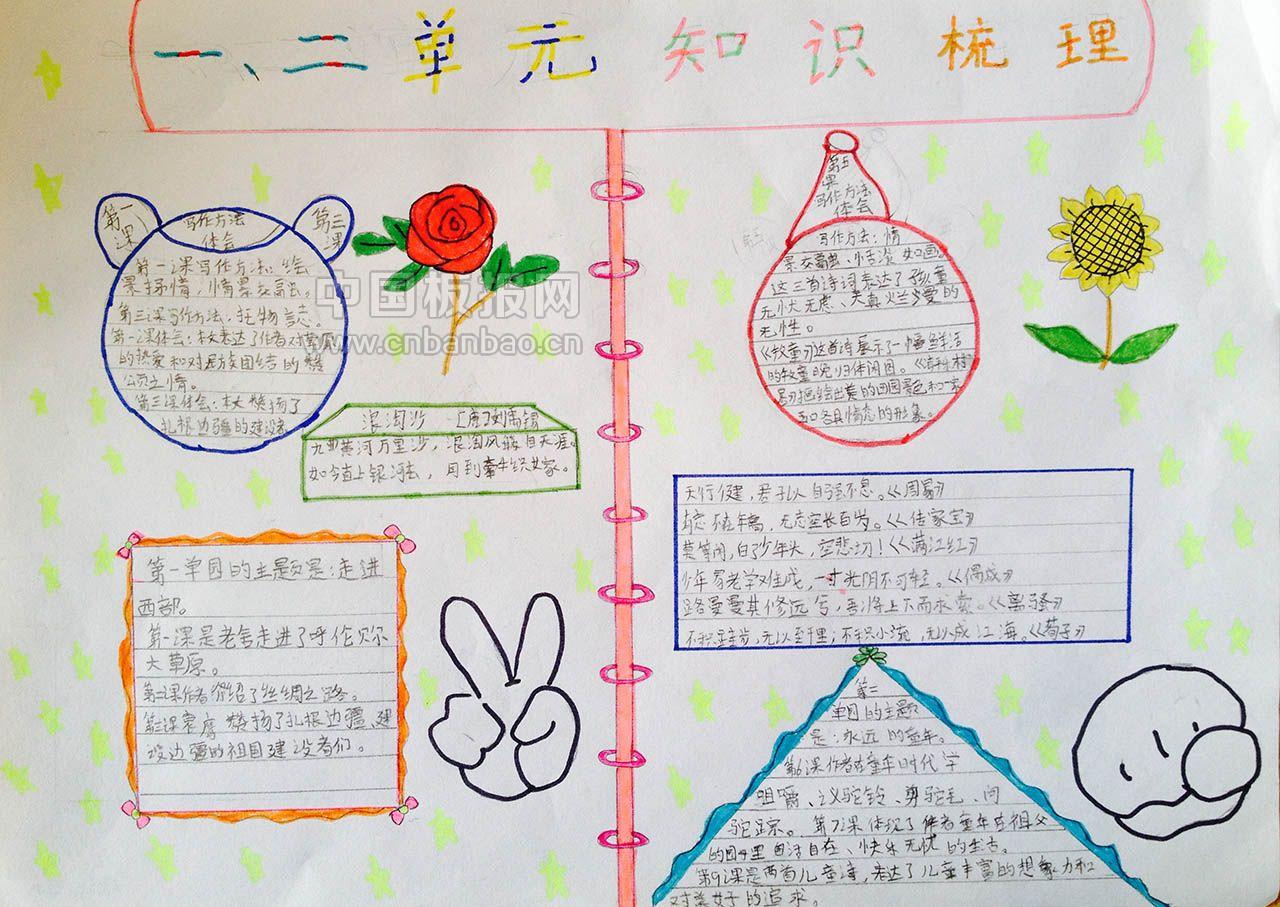 一、二单元知识梳理
第一课
写作方法
体会
第三课
第一课写作方法:绘
景抒情,情景交融。
第三课写作方法:托物言志。
第一课体会:本文表达了作者对草原
的热爱和对民族团结的赞
之情。
第三课体会:本文赞扬了
扎根边疆的建设者
中国板报网
www.cnbanbao.cn
浪淘沙 [唐]刘禹锡
九曲黄河万里沙,浪淘风簸自天涯。
如今直上银河去,同到牵牛织女家。
第一单园的主题是:走进
西部。
第一课是老舍走进了呼伦贝尔
大草原。
第二课作者介绍了丝绸之路。
第三课 赞扬了扎根边疆、建
设边疆的祖国建设者们。
第五
课
写作方法
体会
写作方法:情
景交融、恬淡如画。
这三首诗词表达了孩童
无忧无虑、天真烂漫的
无性。
《牧童》这首诗展示了一幅鲜活
的牧童晚归休闲图。《清平乐村
居》描绘出美的田园景色和一家
五口各具情态的形象。
天行健,君子以自强不息。《周易》
有志不在年高,无志空长百岁。《传家宝》
莫等闲,白了少年头,空悲切!《满江红》
少年易老学难成,一寸光阴不可轻。《偶成》
路曼曼其修远兮,吾将上下而求索。《离骚》
不积跬步,无以至千里;不积小流,无以成江海。《荀子》
第二
单园的主题
是:永远的童年。
第6课作者在童年时代学
咀嚼、议驼铃、剪驼毛、问
驼踪。第7课体现了作者童年在祖父
的园中里自由自在、快乐无忧的生活。
第9课是两首儿童诗,表达了儿童丰富的想象力和
对美好的追求。